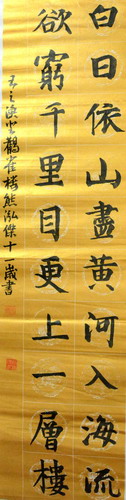 白日依山盡黃河入海流
欲窮千里目更上一層樓
王之渙登鸛雀樓熊泓傑十一歲書